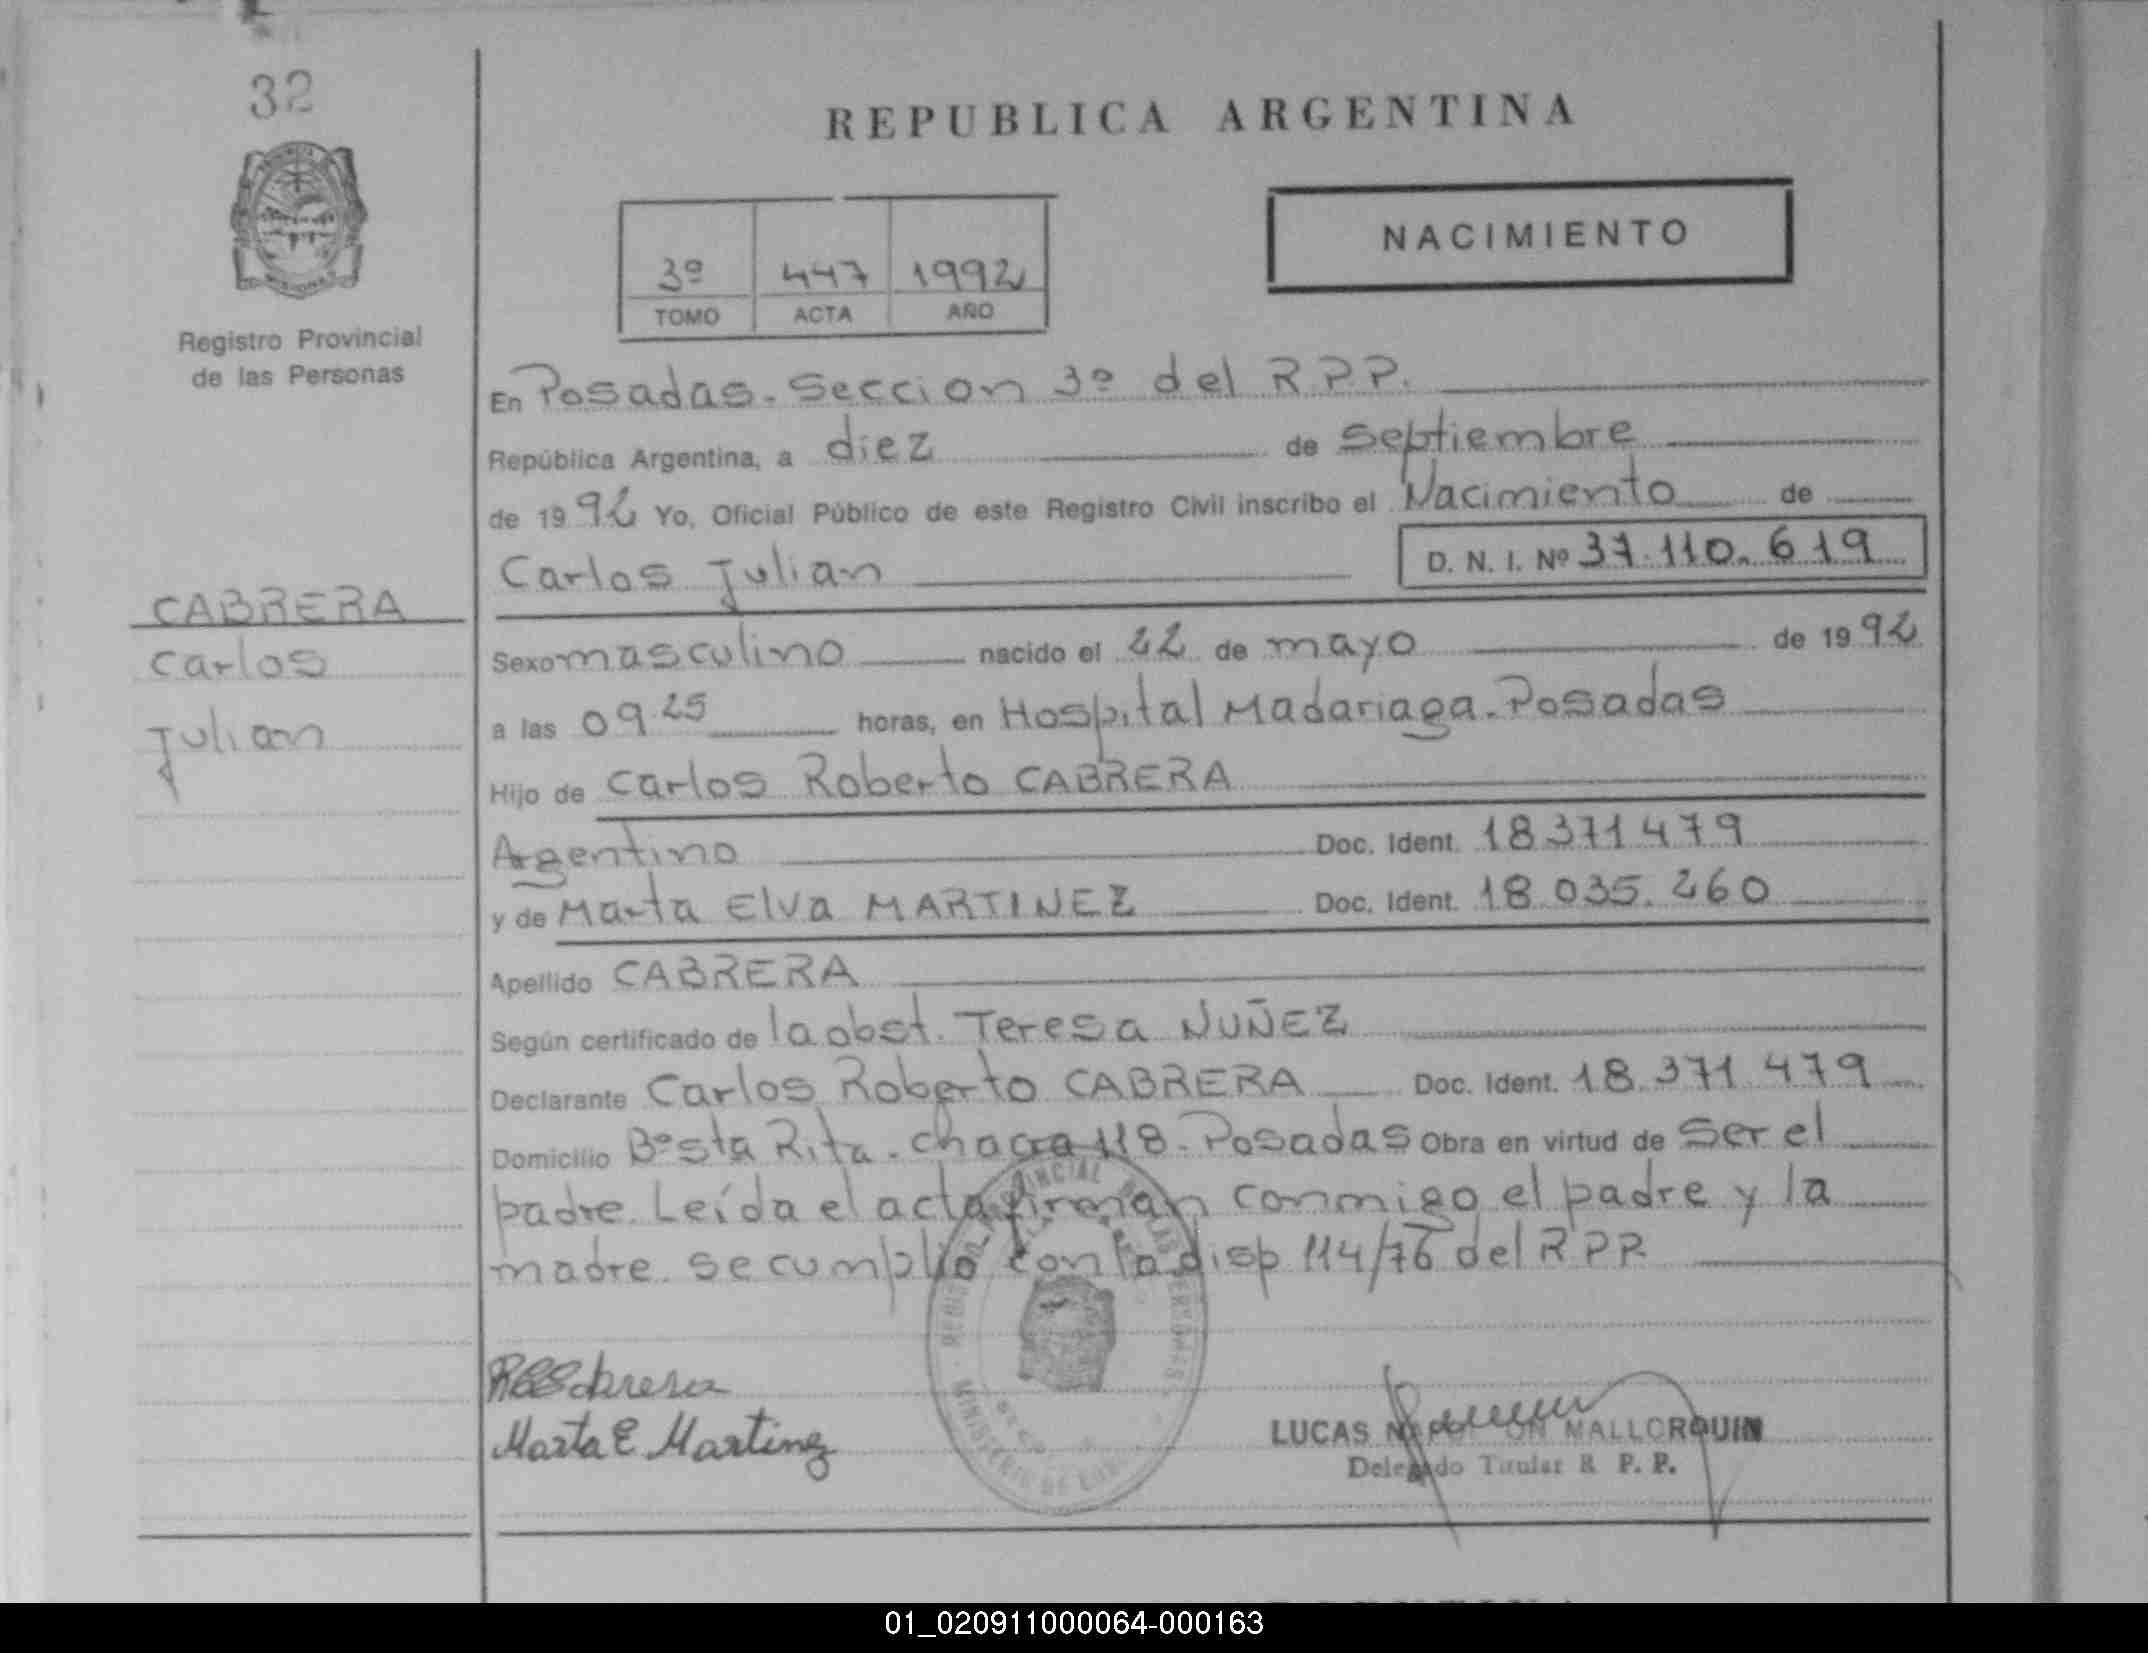 32
REPUBLICA ARGENTINA
NACIMIENTO
3º 447 1992
TOMO ACTA AÑO
Registro Provincial
de las Personas
En Posadas. Seccion 3º del R.P.P.
República Argentina, a diez de septiembre
de 1992 Yo, Oficial Público de este Registro Civil inscribo el Nacimiento de
Carlos Julian D. N. I. Nº 37.110.619
CABRERA
Carlos
Julian
Sexo masculino nacido el 22 de mayo de 1992
a las 09.25 horas, en Hospital Madariaga. Posadas
Hijo de Carlos Roberto CABRERA
Argentino Doc. Ident. 18.371.479
y de Marta Elva MARTINEZ Doc. Ident. 18.035.260
Apellido CABRERA
Según certificado de la obst. Teresa NUÑEZ
Declarante Carlos Roberto CABRERA Doc. Ident. 18.371.479
Domicilio Bº Sta Rita. chacra 118. Posadas Obra en virtud de ser el
padre. Leída el acta firman conmigo el padre y la
madre. se cumplio con la disp 114/76 del R.P.P.
Marta E Martinez
LUCAS MALLORQUIN
Delegado Titular R. P. P.
01_020911000064-000163